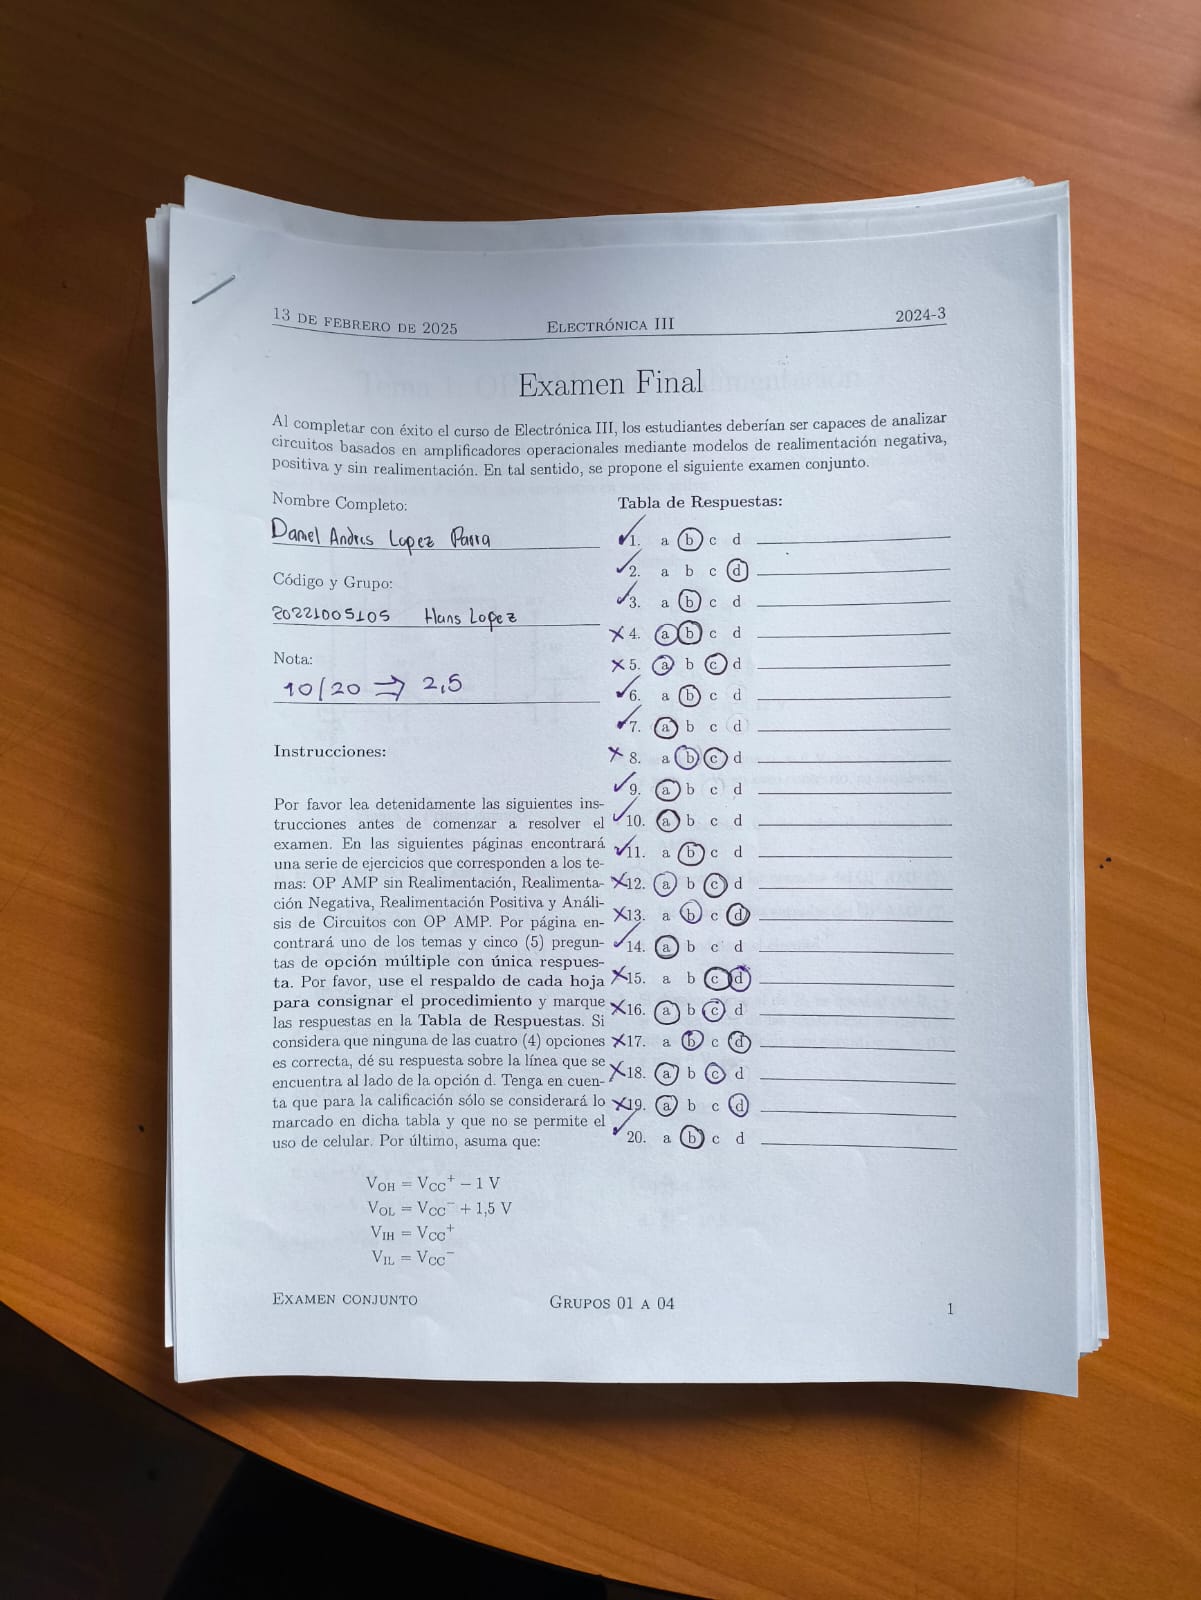 13 DE FEBRERO DE 2025 ELECTRÓNICA III 2024-3
Examen Final
Al completar con éxito el curso de Electrónica III, los estudiantes deberían ser capaces de analizar
circuitos basados en amplificadores operacionales mediante modelos de realimentación negativa,
positiva y sin realimentación. En tal sentido, se propone el siguiente examen conjunto.
Nombre Completo:
Daniel Andres Lopez Parra
Código y Grupo:
20221005105 Hans Lopez
Nota:
10/20 ⇒ 2,5
Instrucciones:
Por favor lea detenidamente las siguientes ins-
trucciones antes de comenzar a resolver el
examen. En las siguientes páginas encontrará
una serie de ejercicios que corresponden a los te-
mas: OP AMP sin Realimentación, Realimenta-
ción Negativa, Realimentación Positiva y Análi-
sis de Circuitos con OP AMP. Por página en-
contrará uno de los temas y cinco (5) pregun-
tas de opción múltiple con única respues-
ta. Por favor, use el respaldo de cada hoja
para consignar el procedimiento y marque
las respuestas en la Tabla de Respuestas. Si
considera que ninguna de las cuatro (4) opciones
es correcta, dé su respuesta sobre la línea que se
encuentra al lado de la opción d. Tenga en cuen-
ta que para la calificación sólo se considerará lo
marcado en dicha tabla y que no se permite el
uso de celular. Por último, asuma que:
V_OH = V_CC⁺ − 1 V
V_OL = V_CC⁻ + 1,5 V
V_IH = V_CC⁺
V_IL = V_CC⁻
Tabla de Respuestas:
✓1. a b c d
✓2. a b c d
✓3. a b c d
✗4. a b c d
✗5. a b c d
✓6. a b c d
✓7. a b c d
✗8. a b c d
✓9. a b c d
✓10. a b c d
✓11. a b c d
✗12. a b c d
✗13. a b c d
✓14. a b c d
✗15. a b c d
✗16. a b c d
✗17. a b c d
✗18. a b c d
✗19. a b c d
✓20. a b c d
EXAMEN CONJUNTO GRUPOS 01 A 04 1